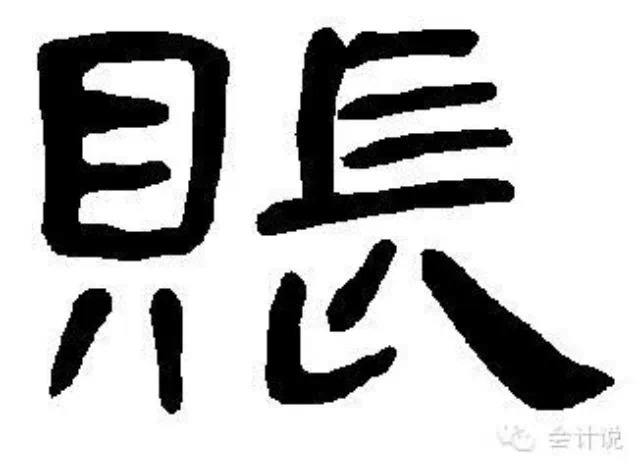 賬
会计说